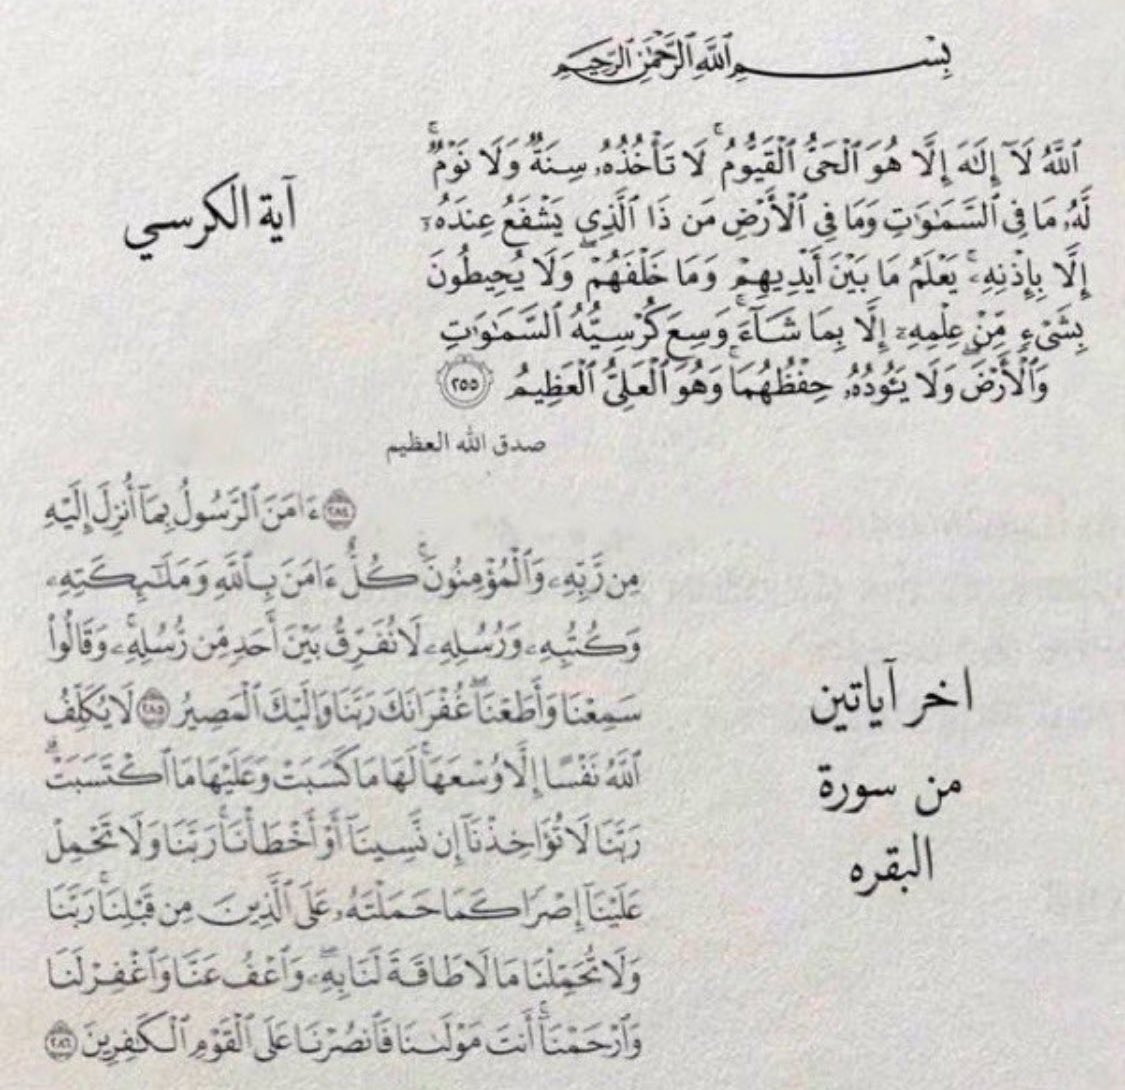 بِسْمِ ٱللَّهِ ٱلرَّحْمَٰنِ ٱلرَّحِيمِ
ٱللَّهُ لَآ إِلَٰهَ إِلَّا هُوَ ٱلْحَىُّ ٱلْقَيُّومُ ۚ لَا تَأْخُذُهُۥ سِنَةٌ وَلَا نَوْمٌ ۚ
لَّهُۥ مَا فِى ٱلسَّمَٰوَٰتِ وَمَا فِى ٱلْأَرْضِ مَن ذَا ٱلَّذِى يَشْفَعُ عِندَهُۥٓ
إِلَّا بِإِذْنِهِۦ ۚ يَعْلَمُ مَا بَيْنَ أَيْدِيهِمْ وَمَا خَلْفَهُمْ ۖ وَلَا يُحِيطُونَ
بِشَىْءٍ مِّنْ عِلْمِهِۦٓ إِلَّا بِمَا شَآءَ ۚ وَسِعَ كُرْسِيُّهُ ٱلسَّمَٰوَٰتِ
وَٱلْأَرْضَ ۖ وَلَا يَـُٔودُهُۥ حِفْظُهُمَا ۚ وَهُوَ ٱلْعَلِىُّ ٱلْعَظِيمُ ٢٥٥
آية الكرسي
صدق الله العظيم
٢٨٤ ءَامَنَ ٱلرَّسُولُ بِمَآ أُنزِلَ إِلَيْهِ
مِن رَّبِّهِۦ وَٱلْمُؤْمِنُونَ ۚ كُلٌّ ءَامَنَ بِٱللَّهِ وَمَلَٰٓئِكَتِهِۦ
وَكُتُبِهِۦ وَرُسُلِهِۦ لَا نُفَرِّقُ بَيْنَ أَحَدٍ مِّن رُّسُلِهِۦ ۚ وَقَالُوا۟
سَمِعْنَا وَأَطَعْنَا ۖ غُفْرَانَكَ رَبَّنَا وَإِلَيْكَ ٱلْمَصِيرُ ٢٨٥ لَا يُكَلِّفُ
ٱللَّهُ نَفْسًا إِلَّا وُسْعَهَا ۚ لَهَا مَا كَسَبَتْ وَعَلَيْهَا مَا ٱكْتَسَبَتْ ۗ
رَبَّنَا لَا تُؤَاخِذْنَآ إِن نَّسِينَآ أَوْ أَخْطَأْنَا ۚ رَبَّنَا وَلَا تَحْمِلْ
عَلَيْنَآ إِصْرًا كَمَا حَمَلْتَهُۥ عَلَى ٱلَّذِينَ مِن قَبْلِنَا ۚ رَبَّنَا
وَلَا تُحَمِّلْنَا مَا لَا طَاقَةَ لَنَا بِهِۦ ۖ وَٱعْفُ عَنَّا وَٱغْفِرْ لَنَا
وَٱرْحَمْنَآ ۚ أَنتَ مَوْلَىٰنَا فَٱنصُرْنَا عَلَى ٱلْقَوْمِ ٱلْكَٰفِرِينَ ٢٨٦
اخر آياتين
من سورة
البقره